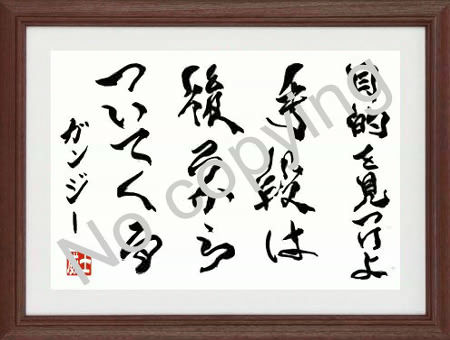 目的を見つけよ
手段は
後から
ついてくる
ガンジー
No copying